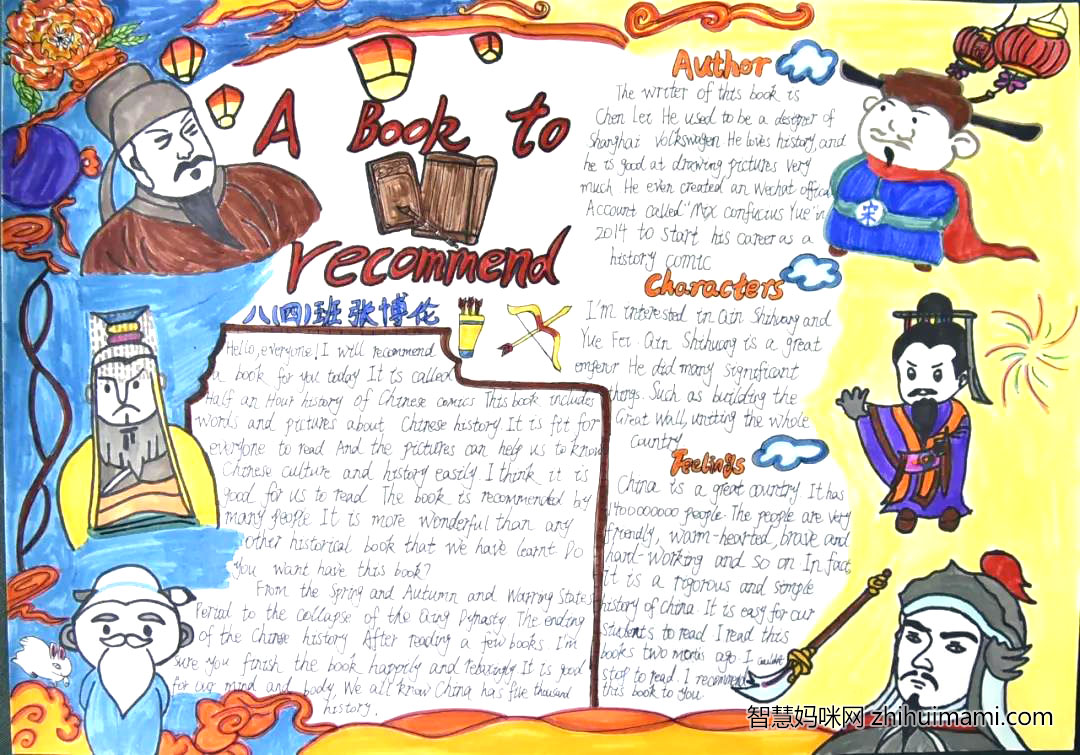 A Book to
recommend
八(四)班张博伦
Hello, everyone! I will recommend
a book for you today It is called
Half an Hour history of Chinese comics This book includes
words and pictures about Chinese history It is fit for
everyone to read And the pictures can help us to know
Chinese culture and history easily I think it is
good for us to read The book is recommended by
many people It is more wonderful than any
other historical book that we have learnt Do
you want have this book?
From the Spring and Autumn and Warring States
Period to the collapse of the Qing Dynasty. The ending
of the Chinese history After reading a few books. I'm
sure you finish the book happily and relaxingly It is good
for our mind and body We all know China has five thousand
history.
Author
The writer of this book is
Chen Lei He used to be a designer of
Shanghai Volkswagen He loves history, and
he is good at drawing pictures very
much He even created an Wechat official
Account called "Mix confucius Yue" in
2014 to start his career as a
history comic
宋
Characters
I'm interested in Qin Shihuang and
Yue Fei. Qin Shihuang is a great
emperor He did many significant
things. Such as building the
Great Wall, uniting the whole
country
Feelings
China is a great country It has
1400000000 people The people are very
friendly, warm-hearted, brave and
hard-working and so on In fact,
it is a rigorous and simple
history of china It is easy for our
students to read I read this
books two months ago I couldn't
stop to read. I recommend
this book to you
智慧妈咪网 zhihuimami.com